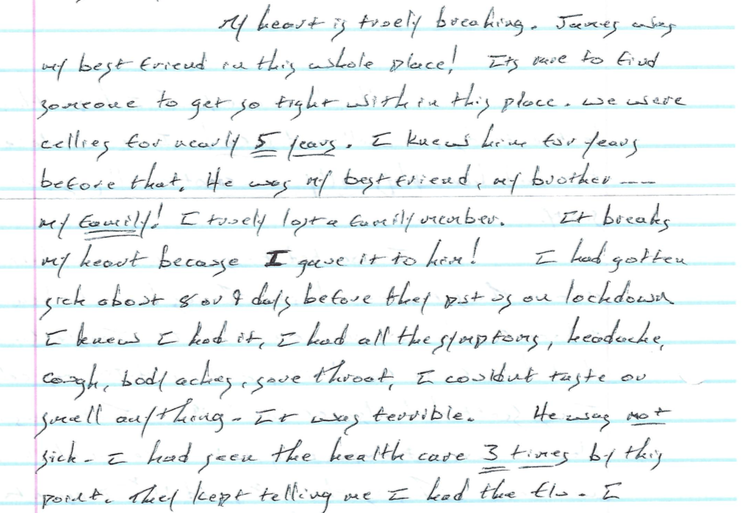 My heart is truely breaking. James was
my best friend in this whole place! Its rare to find
someone to get so tight with in this place. We were
cellies for nearly 5 years. I knew him for years
before that. He was my best friend, my brother ---
my family! I truely lost a family member. It breaks
my heart because I gave it to him! I had gotten
sick about 8 or 9 days before they put us on lockdown
I knew I had it, I had all the symptoms, headache,
cough, body aches, sore throat, I couldnt taste or
smell anything - It was terrible. He was not
sick - I had seen the health care 3 times by this
point. They kept telling me I had the flu - I